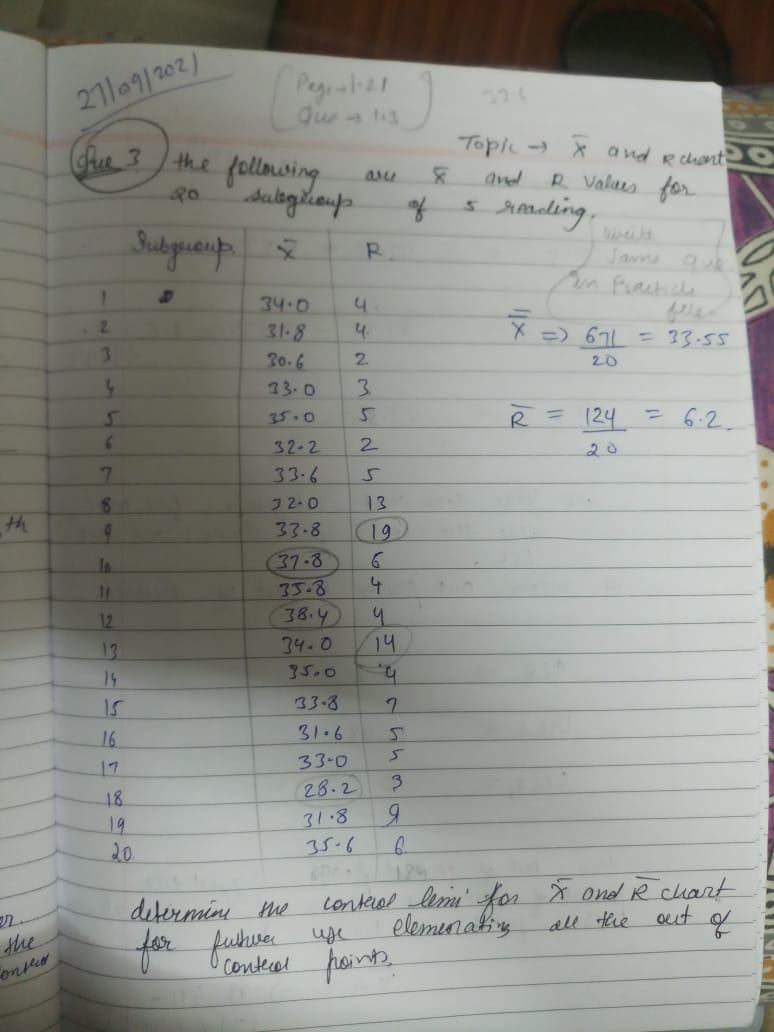 27/09/2021
Page → 1.21
Que → 1.3
33.6
Topic → X̄ and R chart
Que 3 the following are X̄ and R Values for
20 subgroup of 5 reading.
write
same que
in Practicle
file
Subgroup X̄ R.
1 34.0 4
2 31.8 4
3 30.6 2
4 33.0 3
5 35.0 5
6 32.2 2
7 33.6 5
8 32.0 13
9 33.8 19
10 37.8 6
11 35.8 4
12 38.4 4
13 34.0 14
14 35.0 4
15 33.8 7
16 31.6 5
17 33.0 5
18 28.2 3
19 31.8 9
20 35.6 6
X̄̄ => 671/20 = 33.55
R̄ = 124/20 = 6.2.
determine the control limi for X̄ and R̄ chart
for future use elemenating all the out of
control points.
th
er.
the
control